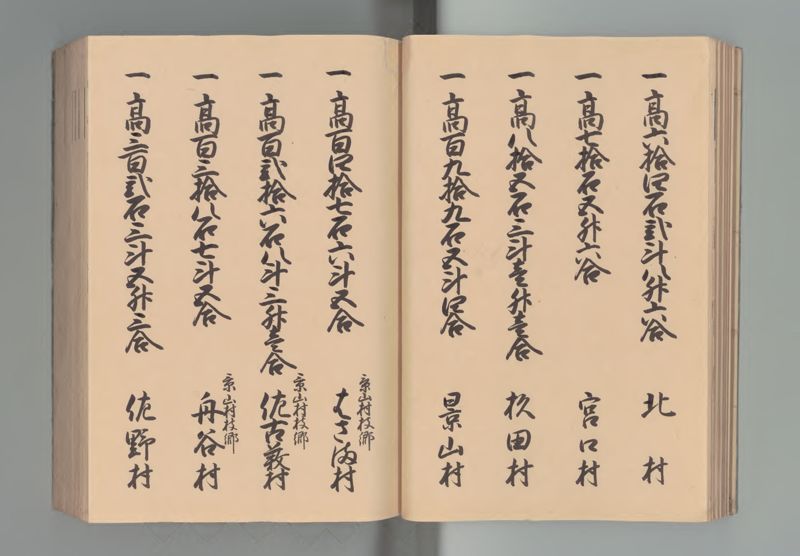 一高六拾四石弐斗八升六合 北村
一高七拾石五升六合 宮口村
一高八拾五石三斗壱升壱合 杉田村
一高百九拾九石五斗四合 景山村
一高百四拾七石六斗五合 景山村枝郷 はさま村
一高百弐拾六石八斗三升壱合 景山村枝郷 佐古薮村
一高百三拾八石七斗五合 景山村枝郷 舟谷村
一高三百弐石三斗五升三合 佐野村